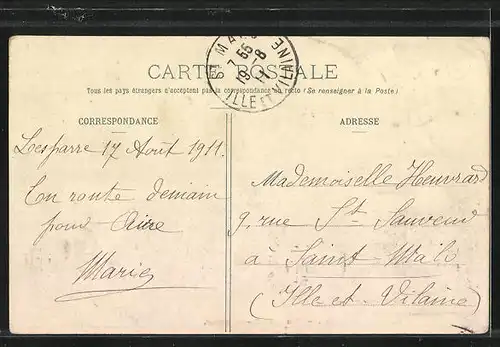 ST MALO
7 55
19 - 8
11
ILLE ET VILAINE
CARTE POSTALE
Tous les pays étrangers n'acceptent pas la correspondance au recto (Se renseigner à la Poste)
CORRESPONDANCE
ADRESSE
Lesparre 17 Août 1911.
En route demain
pour
Marie
Mademoiselle Heuvrard
9, rue St Sauveur
à Saint-Malo
(Ille et Vilaine)